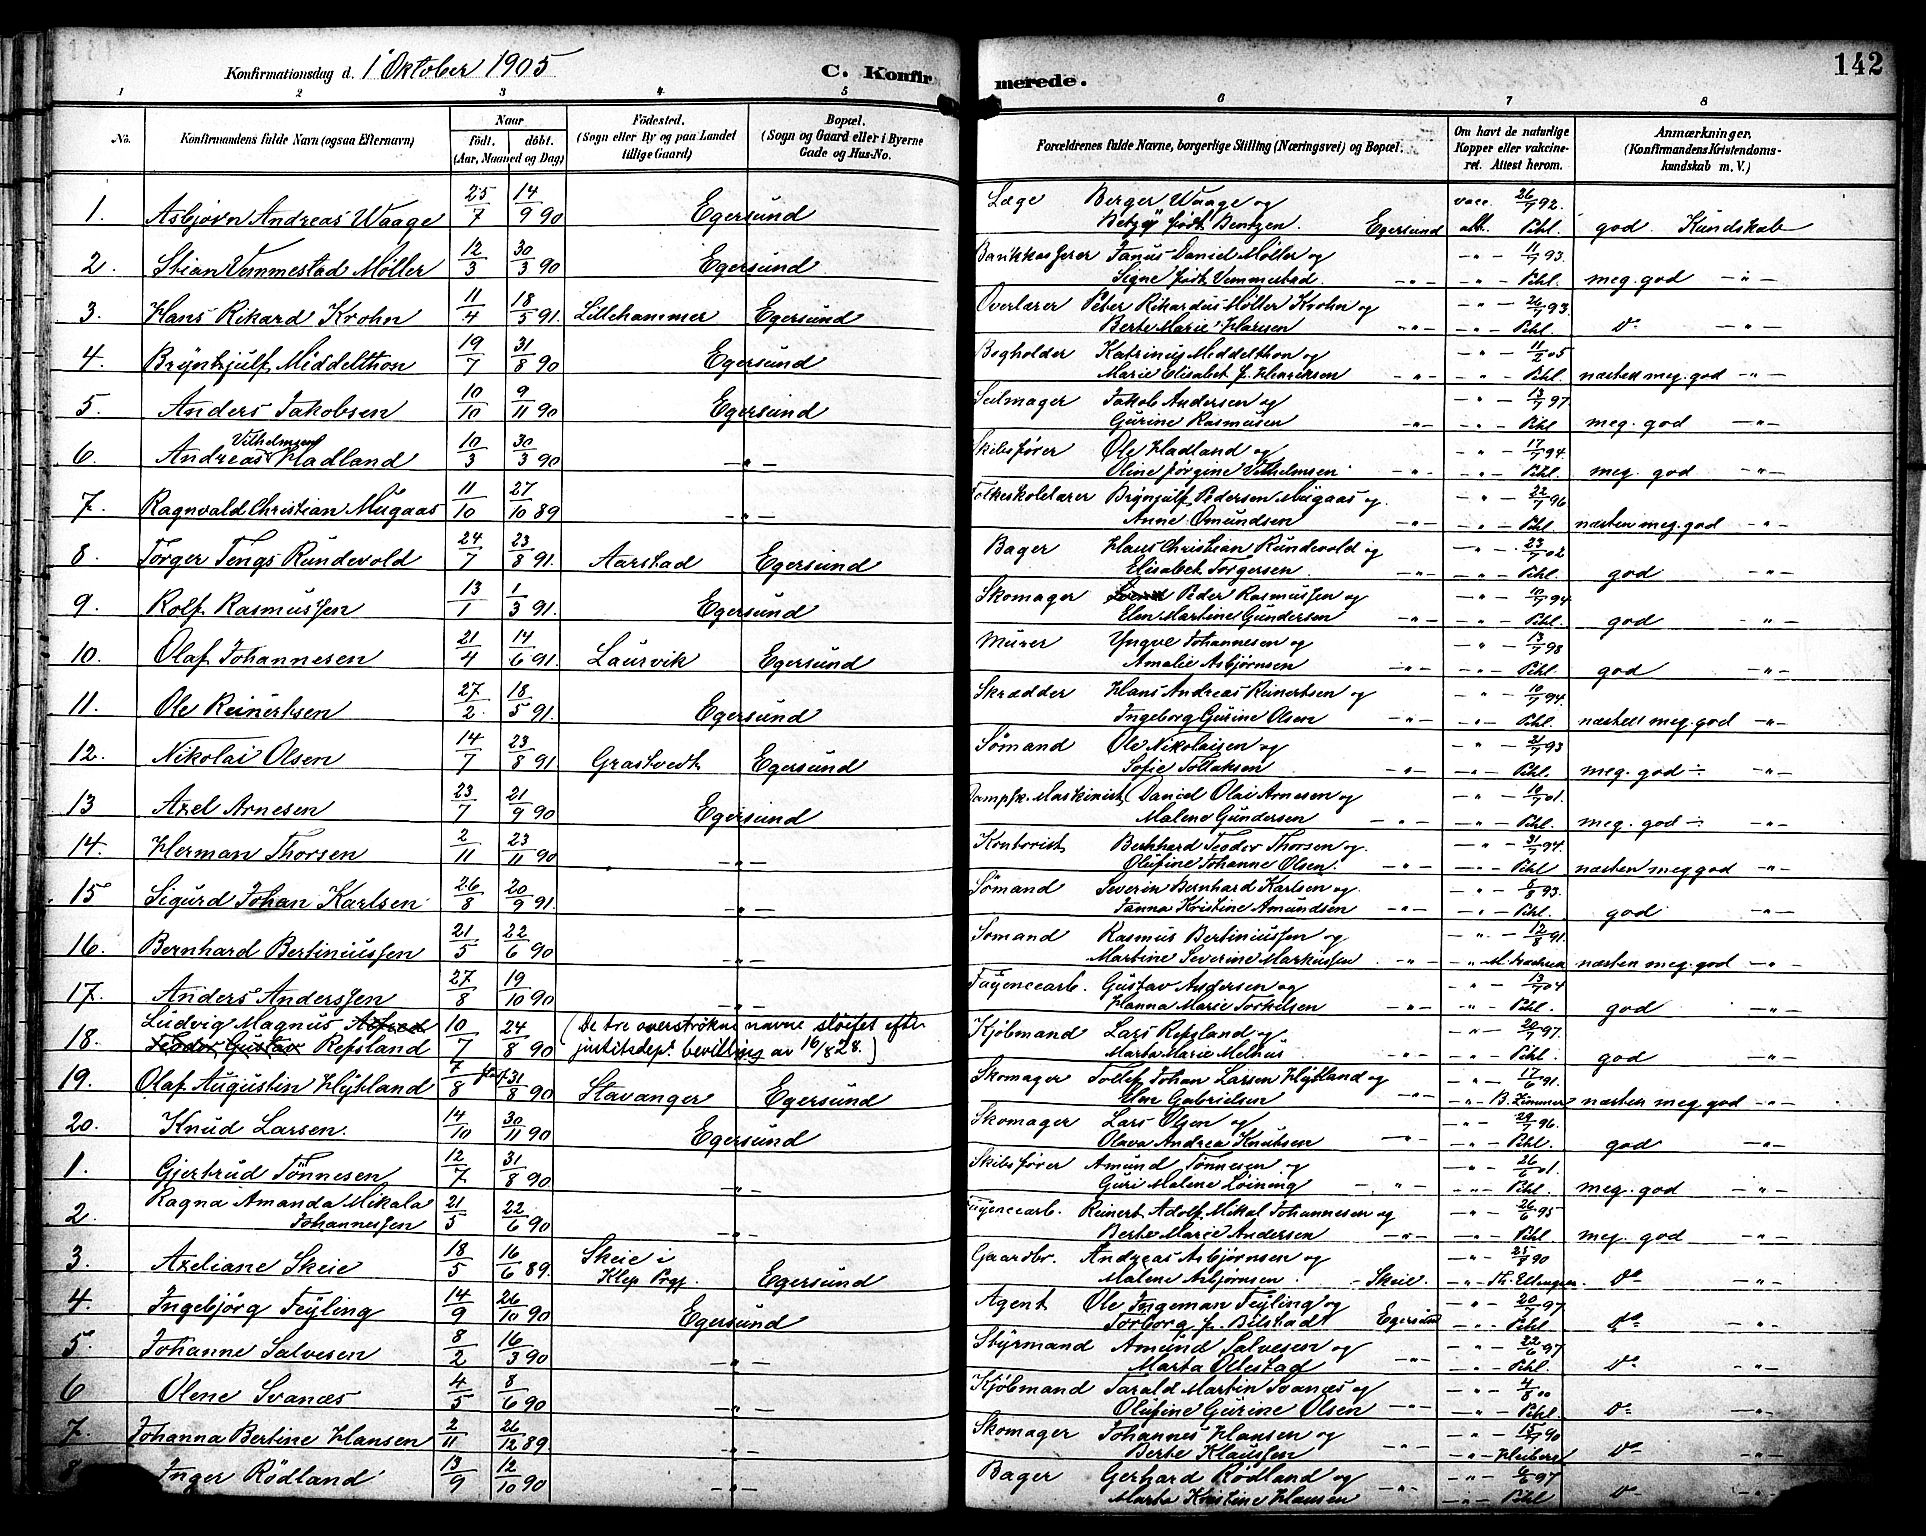 142
Konfirmationsdag d. 1 Oktober 1905 C. Konfirmerede.
1 2 3 4 5 6 7 8
No. Konfirmandens fulde Navn (ogsaa Efternavn) Naar født. døbt. (Aar, Maaned og Dag) Fødested. (Sogn eller By og paa Landet tillige Gaard) Bopæl. (Sogn og Gaard eller i Byerne Gade og Hus-No. Forældrenes fulde Navne, borgerlige Stilling (Næringsvei) og Bopæl. Om havt de naturlige Kopper eller vakcineret. Attest herom. Anmærkninger. (Konfirmandens Kristendomskundskab m. V.)
1. Asbjørn Andreas Waage 25/7 14/9 90 Egersund Læge Berger Waage og vacc. 26/7 92.
Betzy født Bentzen. Egersund att. Pihl. god Kundskab
2. Stian Vemmestad Møller 12/3 30/3 90 Egersund Bankkasserer Janus Daniel Møller og -"- 11/7 93.
Signe født Vemmestad. -"- -"- Pihl. meg. god -"-
3. Hans Rikard Krohn 11/4 18/5 91. Lillehammer Egersund Overlærer Peter Rikardus Møller Krohn og -"- 26/7 93.
Berte Marie Hansen -"- -"- Pihl. Do -"-
4. Brynhjulf Middelthon 19/7 31/8 90 Egersund Bogholder Katrinus Middelthon og -"- 11/2 05
Marie Elisabet f. Henriksen -"- -"- Pihl. næsten meg. god -"-
5. Anders Jakobsen 10/10 9/11 90 Egersund Seilmager Jakob Andersen og -"- 13/7 97.
Gurine Rasmusen -"- -"- Pihl meg. god -"-
6. Andreas Vilhelmsen Hadland 10/3 30/3 90 -"- Skibsfører Ole Hadland og -"- 17/7 94.
Oline Jørgine Vilhelmsen -"- -"- Pihl. meg. god -"-
7. Ragnvald Christian Mugaas 11/10 27/10 89 -"- Folkeskolelærer Brynjulf Pedersen Mugaas og -"- 22/7 96
Anne Omundsen -"- -"- Pihl. næsten meg. god -"-
8. Torger Tengs Rundevold 24/7 23/8 91. Aarstad Egersund Bager Hans Christian Rundevold og -"- 23/7 02
Elisabet Torgersen -"- -"- Pihl. god -"-
9. Rolf Rasmussen 13/1 1/3 91. Egersund Skomager Peder Rasmussen og -"- 10/7 94.
Elen Martine Gundersen -"- -"- Pihl. god -"-
10. Olaf Johannesen 21/4 14/6 91. Laurvik Egersund Murer Yngve Johannesen og -"- 13/7 98
Amalie Asbjørnsen -"- -"- Pihl. god -"-
11. Ole Reinertsen 27/2 18/5 91. Egersund Skrædder Hans Andreas Reinertsen og -"- 10/7 94.
Ingeborg Gurine Olsen -"- -"- Pihl. næsten meg. god -"-
12. Nikolai Olsen 14/7 23/8 91 Grastvedt Egersund Sømand Ole Nikolaisen og -"- 21/7 93
Sofie Tollaksen -"- -"- Pihl. meg. god ÷ -"-
13 Axel Arnesen 23/7 21/9 90 Egersund Dampsk. Maskinist Daniel Olai Arnesen og -"- 10/7 01.
Malene Gundersen -"- -"- Pihl. meg. god ÷ -"-
14. Herman Thorsen 2/11 23/11 90 -"- Kontorist Bernhard Teodor Thorsen og -"- 31/7 94.
Olufine Johanne Olsen. -"- -"- Pihl næsten meg god -"-
15 Sigurd Johan Karlsen 26/8 20/9 91. -"- Sømand Severin Bernhard Karlsen og -"- 8/8 93.
Janna Kristine Amundsen -"- -"- Pihl. god -"-
16. Bernhard Bertiniussen 21/5 22/6 90 -"- Sømand Rasmus Bertiniussen og -"- 12/8 91.
Martine Severine Markussen -"- -"- næsten meg. god -"-
17. Anders Anderssen 27/8 19/10 90 -"- Fayencearb. Gustav Andersen og -"- 13/7 04
Hanna Marie Torkilsen -"- -"- Pihl. god -"-
18. Ludvig Magnus Alfred 10/7 24/8 90 (De tre overstrøkne navne sløifes efter Kjøbmand Lars Refsland og -"- 20/7 97.
Teodor Gustav Refsland justitsdept. bevilling av 16/8 28.) Marta Marie Melhus -"- -"- Pihl. god -"-
19. Olaf Augustin Hylland 7/8 31/8 90 Stavanger Egersund Skomager Tollef Johan Larsen Hylland og -"- 17/6 91.
Elen Gabrielsen -"- -"- B. Zimmer næsten meg. god -"-
20. Knud Larsen. 14/10 30/11 90 Egersund Skomager Lars Olsen og -"- 29/7 96.
Olava Andrea Knutsen -"- -"- Pihl. god -"-
1. Gjertrud Tønnesen 12/7 31/8 90 -"- Skibsfører Amund Tønnesen og -"- 26/6 01.
Guri Malene Løining -"- -"- Pihl. meg. god -"-
2. Ragna Amanda Mikala 21/5 22/6 90 -"- Fayencearb. Reinert Adolf Mikal Johannesen og -"- 26/6 95
Johannessen Berte Marie Andersen -"- -"- Pihl meg. god -"-
3. Axeliane Skeie 18/5 16/6 89. Skeie i Klep Prgj. Egersund Gaardbr. Andreas Asbjørnsen og -"- 25/8 90
Malene Asbjørnsen. - Skeie. -"- Do -"-
4. Ingebjørg Feyling 14/9 26/10 90 Egersund Agent Ole Ingeman Feyling og -"- 20/7 97
Torborg f. Bilstad Egersund -"- Pihl Do -"-
5. Johanne Salvesen 8/2 16/3 90 -"- Styrmand Amund Salvesen og -"- 22/6 97
Marta Ollestad -"- -"- Pihl. Do -"-
6 Olene Svanæs 4/5 8/6 90 -"- Kjøbmand Tarald Martin Svanæs og -"- 4/8 00
Olufine Gurine Olsen -"- -"- Pihl. Do -"-
7. Johanna Bertine Hansen 2/11 26/12 89 -"- Skomager Johannes Hansen og -"- 15/7 90
Berte Klaussen -"- -"- Kleiberg Do -"-
8 Inger Rødland 13/9 12/10 90 -"- Bager Gerhard Rødland og -"- 6/6 97
Marta Kristine Hansen -"- -"- Pihl Do -"-